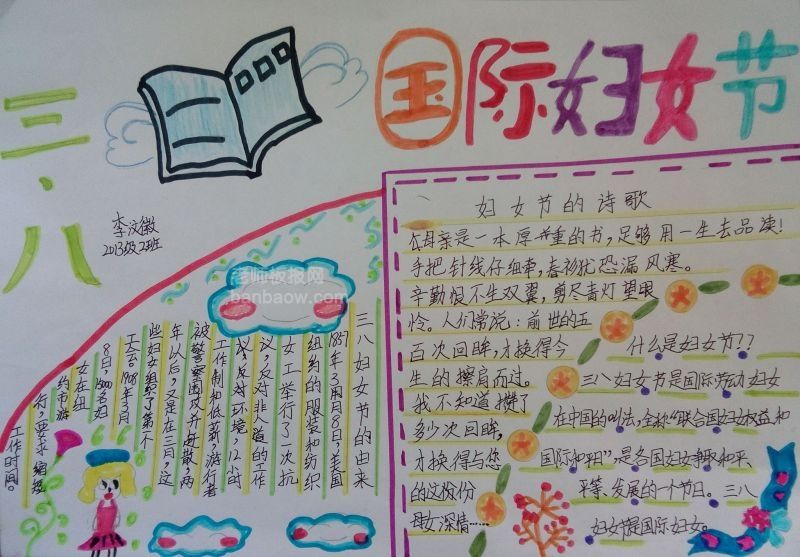 三·八
国际妇女节
李汶徽
2013级2班
老师板报网
banbaow.com
三八妇女节的由来
1857年3月8日,美国
纽约的服装和纺织
女工举行了一次抗
议,反对非人道的工作
环境,12小时
工作制和低薪,游行者
被警察围攻并赶散,两
年以后,又是在三月,这
些妇女组织了第一个
工会。1908年3月
8日,1500名妇
女在纽
约市游
行,要求缩短
工作时间。
妇女节的诗歌
母亲是一本厚重的书,足够用一生去品读!
手把针线仔细牵,春衫犹恐漏风寒。
辛勤恨不生双翼,剪尽青灯望眼
怜。人们常说:前世的五
百次回眸,才换得今
生的擦肩而过。
我不知道攒了
多少次回眸,
才换得与您
的这份份
母女深情……
什么是妇女节??
三八妇女节是国际劳动妇女
在中国的叫法,全称“联合国妇女权益和
国际和平日”,是各国妇女争取和平、
平等、发展的一个节日。三八
妇女节是国际妇女。